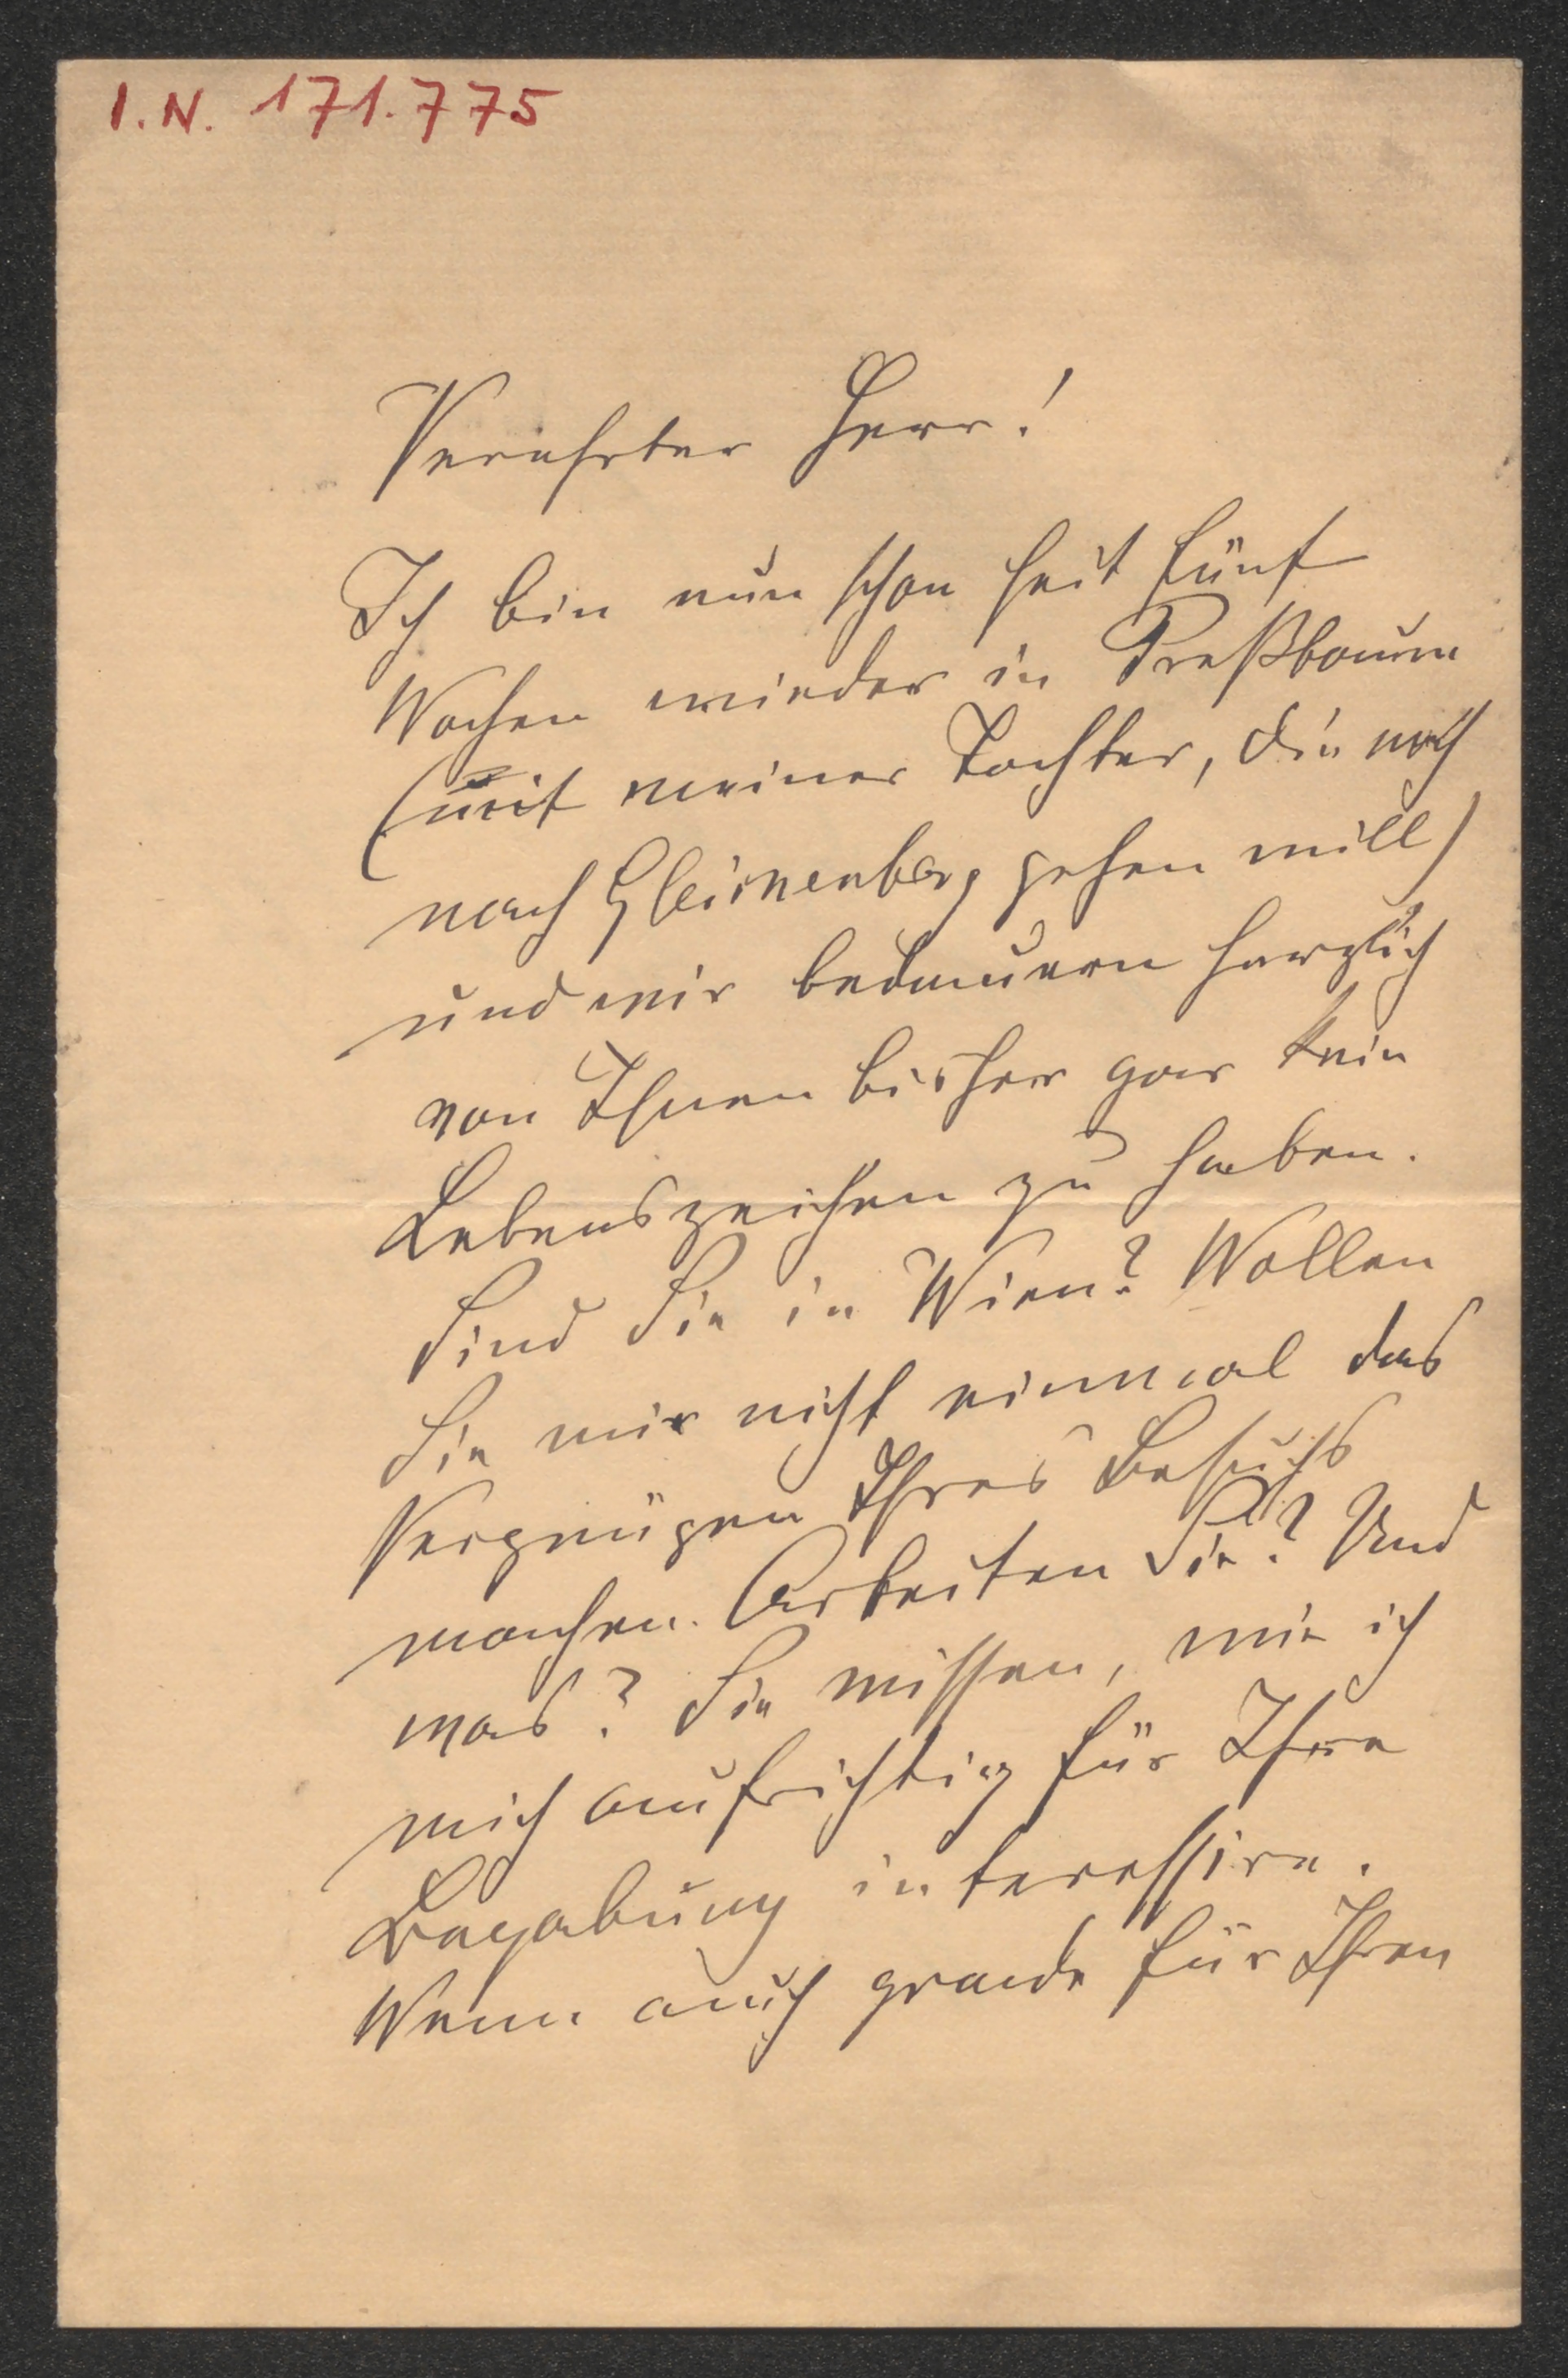 I.N. 171.775
Verehrter Herr!
Ich bin nun schon seit fünf
Wochen wieder in Preßbaum
(mit meiner Tochter, die noch
nach Gleichenberg gehen will)
und wir bedauern herzlich
von Ihnen bisher gar kein
Lebenszeichen zu haben.
Sind Sie in Wien? Wollen
Sie mir nicht einmal das
Vergnügen Ihres Besuchs
machen. Arbeiten Sie? Und
was? Sie wissen, wie ich
mich aufrichtig für Ihre
Begabung interessire.
Wenn auch grade für Ihren